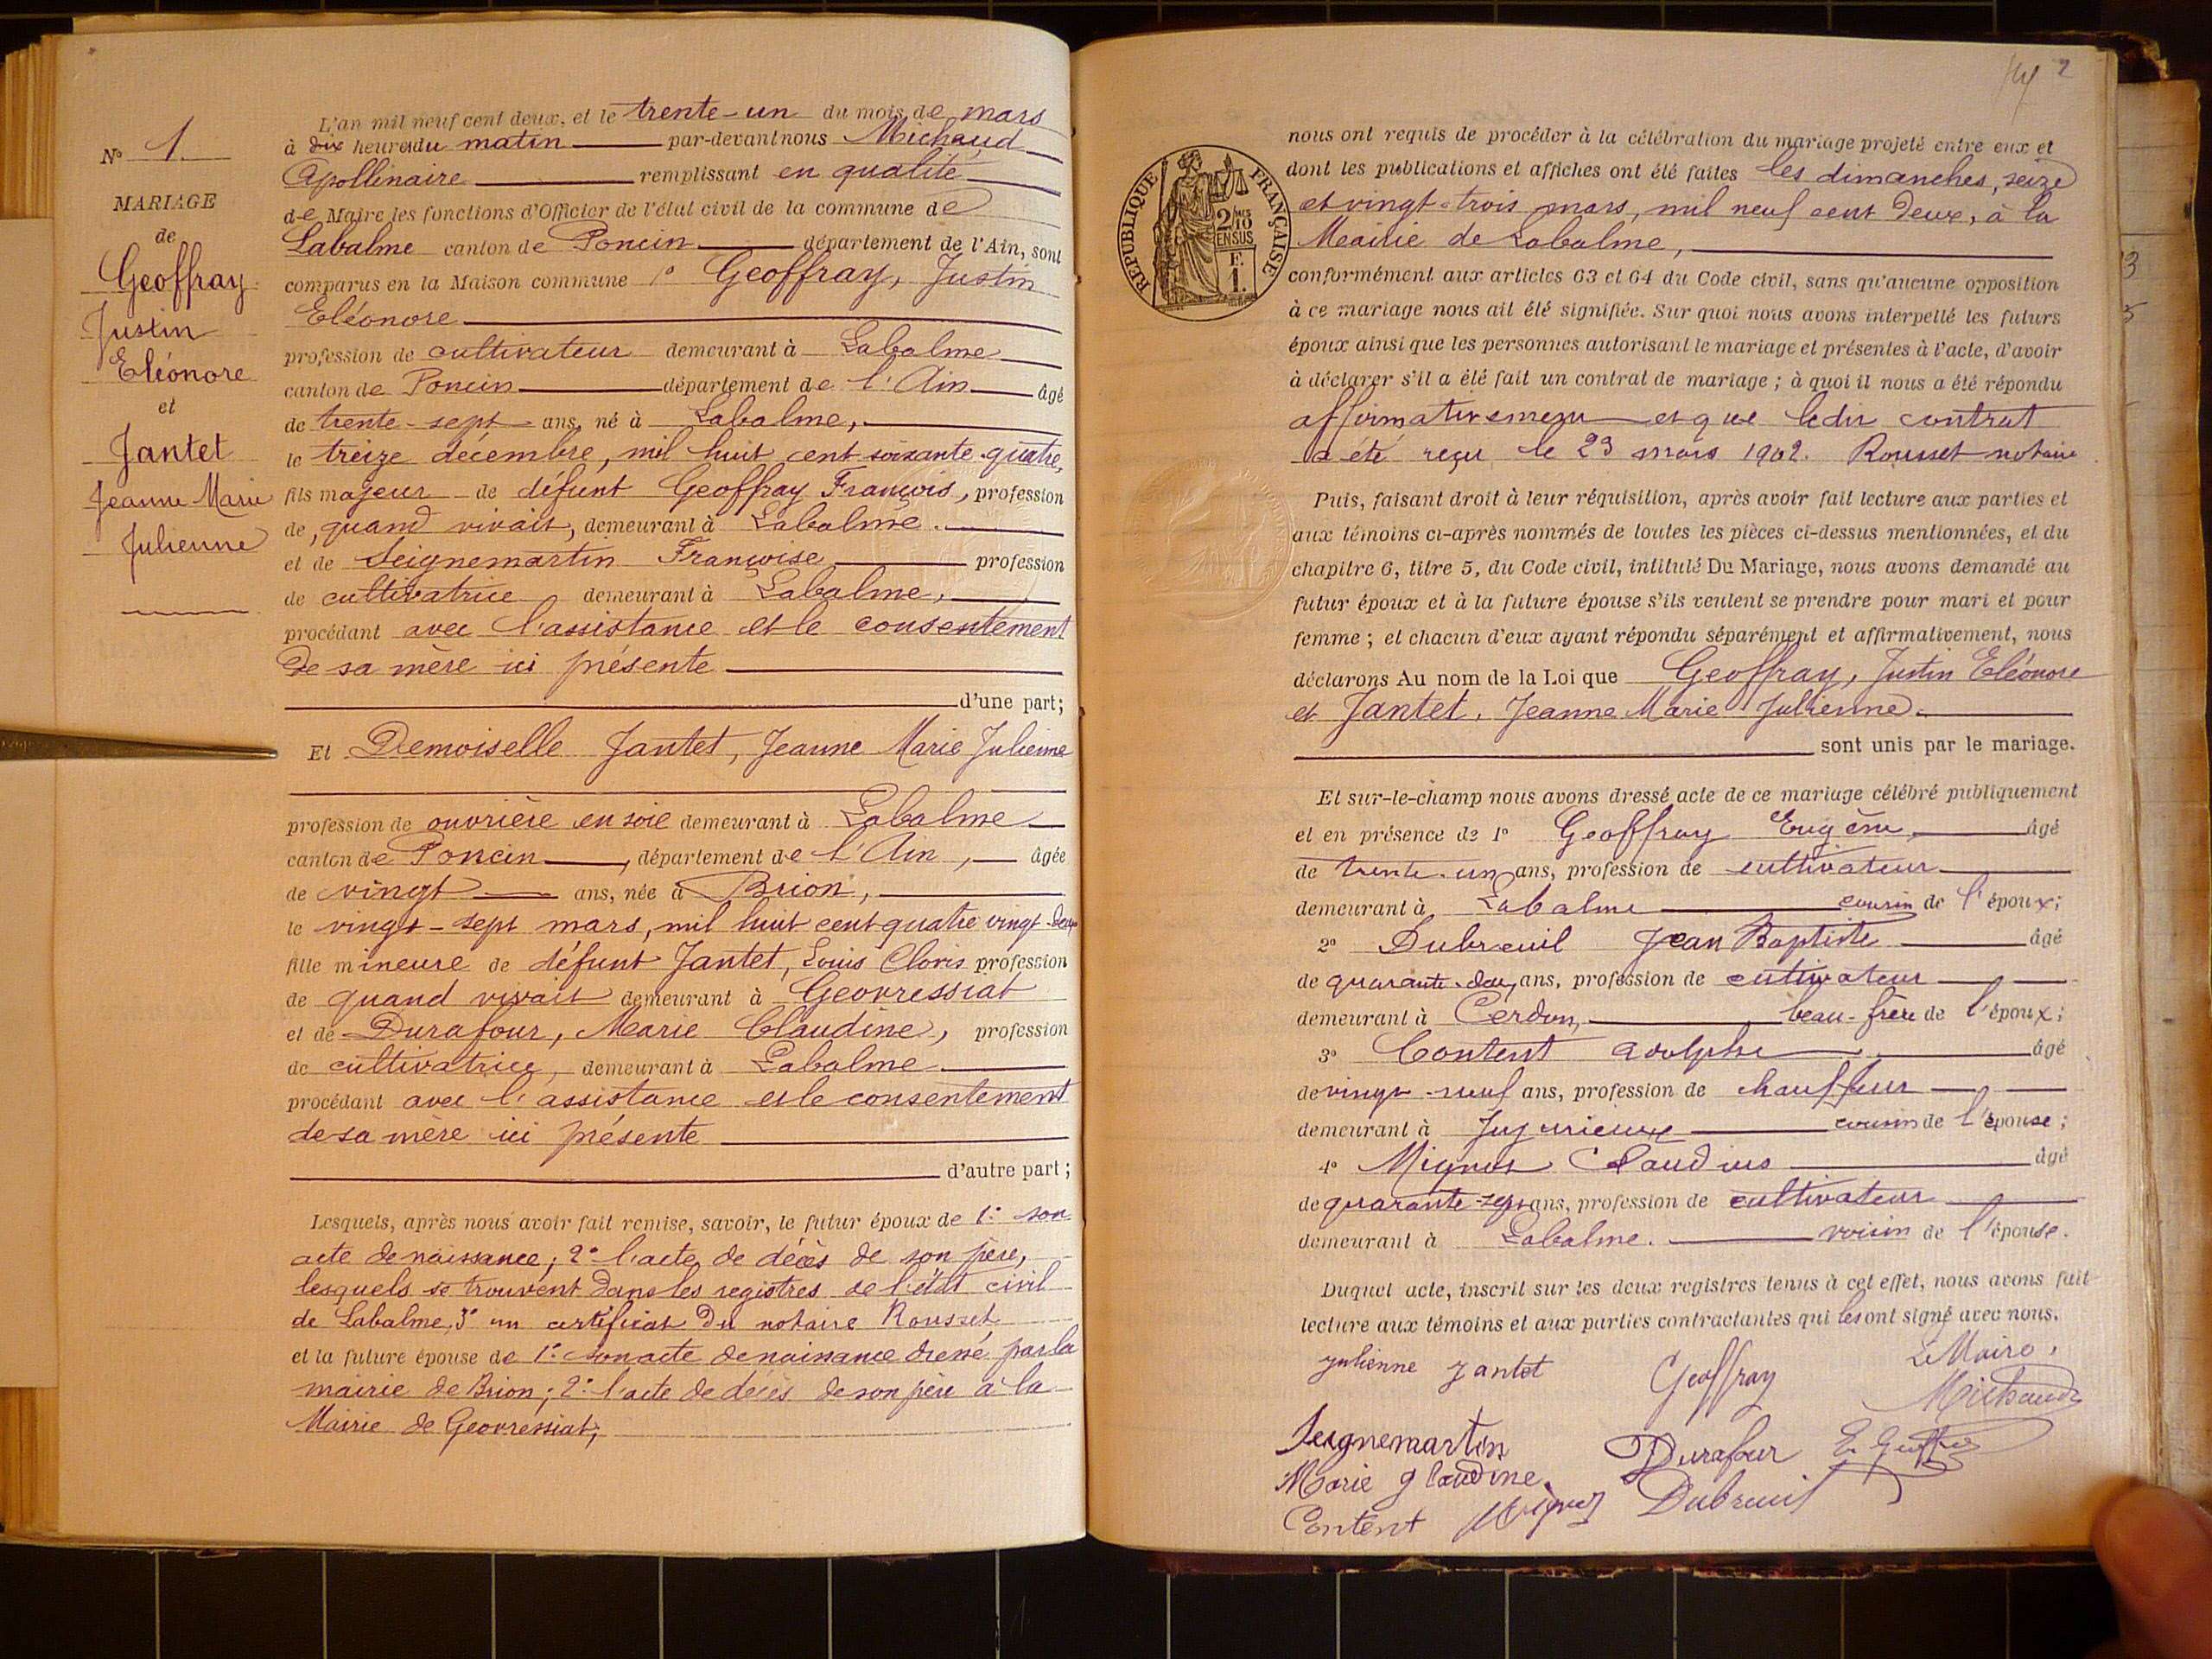 N° 1
MARIAGE
de
Geoffray
Justin
Eléonore
et
Jantet
Jeanne Marie
Julienne
L'an mil neuf cent deux, et le trente-un du mois de mars
à dix heures du matin par-devant nous Michaud
Apollinaire remplissant en qualité
de Maire les fonctions d'Officier de l'état civil de la commune de
Labalme canton de Poncin département de l'Ain, sont
comparus en la Maison commune 1° Geoffray, Justin
Eléonore
profession de cultivateur demeurant à Labalme
canton de Poncin département de l'Ain âgé
de trente-sept ans, né à Labalme,
le treize décembre, mil huit cent soixante-quatre,
fils majeur de défunt Geoffray François, profession
de, quand vivait, demeurant à Labalme.
et de Seignemartin Françoise profession
de cultivatrice demeurant à Labalme,
procédant avec l'assistance et le consentement
de sa mère ici présente
d'une part;
Et Demoiselle Jantet, Jeanne Marie Julienne
profession de ouvrière en soie demeurant à Labalme
canton de Poncin, département de l'Ain, âgée
de vingt ans, née à Brion,
le vingt-sept mars, mil huit cent quatre vingt-deux
fille mineure de défunt Jantet, Louis Clovis profession
de quand vivait demeurant à Geovressiat
et de Durafour, Marie Claudine, profession
de cultivatrice, demeurant à Labalme
procédant avec l'assistance et le consentement
de sa mère ici présente
d'autre part;
Lesquels, après nous avoir fait remise, savoir, le futur époux de 1° son
acte de naissance; 2° l'acte de décès de son père,
lesquels se trouvent dans les registres de l'état civil
de Labalme, 3° un certificat du notaire Rousset
et la future épouse de 1° son acte de naissance dressé par la
mairie de Brion; 2° l'acte de décès de son père à la
Mairie de Geovressiat,
2
RÉPUBLIQUE FRANÇAISE
2/10
EN SUS
F.
1.
nous ont requis de procéder à la célébration du mariage projeté entre eux et
dont les publications et affiches ont été faites les dimanches, seize
et vingt-trois mars, mil neuf cent deux, à la
Mairie de Labalme,
conformément aux articles 63 et 64 du Code civil, sans qu'aucune opposition
à ce mariage nous ait été signifiée. Sur quoi nous avons interpellé les futurs
époux ainsi que les personnes autorisant le mariage et présentes à l'acte, d'avoir
à déclarer s'il a été fait un contrat de mariage; à quoi il nous a été répondu
affirmativement et que ledit contrat
a été reçu le 23 mars 1902. Rousset notaire
Puis, faisant droit à leur réquisition, après avoir fait lecture aux parties et
aux témoins ci-après nommés de toutes les pièces ci-dessus mentionnées, et du
chapitre 6, titre 5, du Code civil, intitulé Du Mariage, nous avons demandé au
futur époux et à la future épouse s'ils veulent se prendre pour mari et pour
femme; et chacun d'eux ayant répondu séparément et affirmativement, nous
déclarons Au nom de la Loi que Geoffray, Justin Eléonore
et Jantet, Jeanne Marie Julienne.
sont unis par le mariage.
Et sur-le-champ nous avons dressé acte de ce mariage célébré publiquement
et en présence de 1° Geoffray Eugène âgé
de trente-un ans, profession de cultivateur
demeurant à Labalme cousin de l'époux;
2° Dubreuil Jean Baptiste âgé
de quarante-deux ans, profession de cultivateur
demeurant à Cerdon, beau-frère de l'époux;
3° Content Adolphe âgé
de vingt-neuf ans, profession de chauffeur
demeurant à Jujurieux cousin de l'épouse;
4° Mignot Claudius âgé
de quarante-sept ans, profession de cultivateur
demeurant à Labalme. voisin de l'épouse.
Duquel acte, inscrit sur les deux registres tenus à cet effet, nous avons fait
lecture aux témoins et aux parties contractantes qui les ont signé avec nous.
Julienne Jantet Geoffray Le Maire,
Michaud
Seignemartin Durafour
Marie Glaudine
Content Mignot Dubreuil